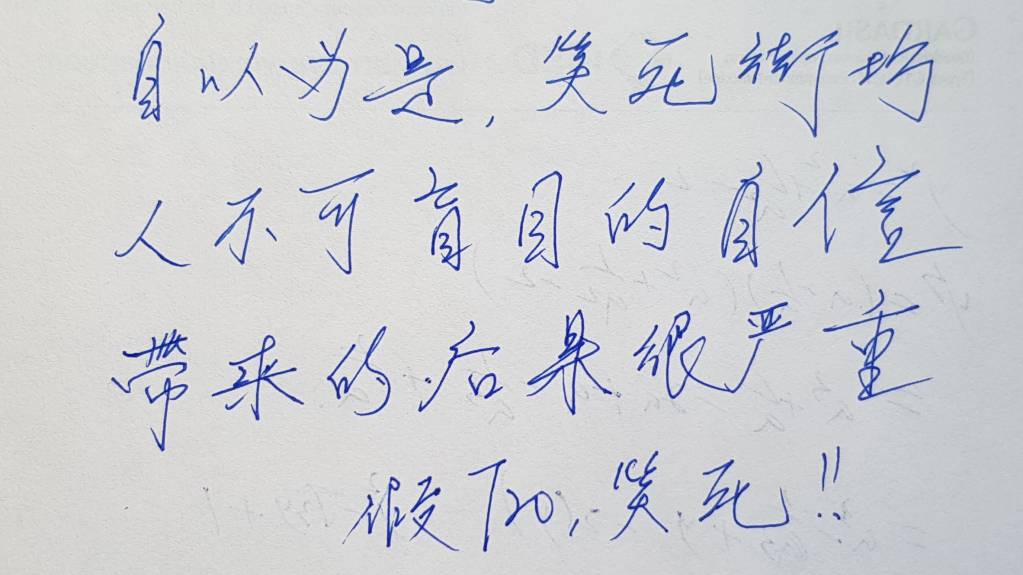 自以为是,笑死街坊
人不可盲目的自信
带来的后果很严重
假T20,笑死!!